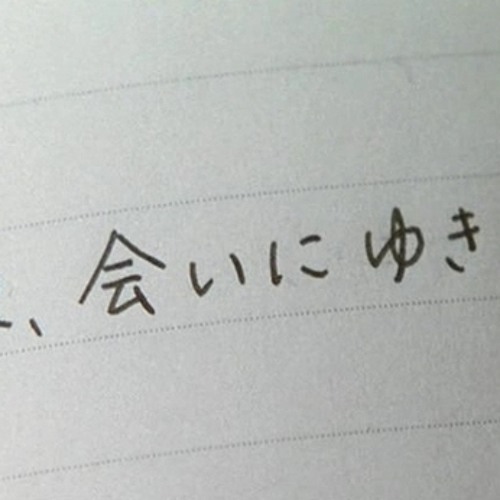 、会いにゆき